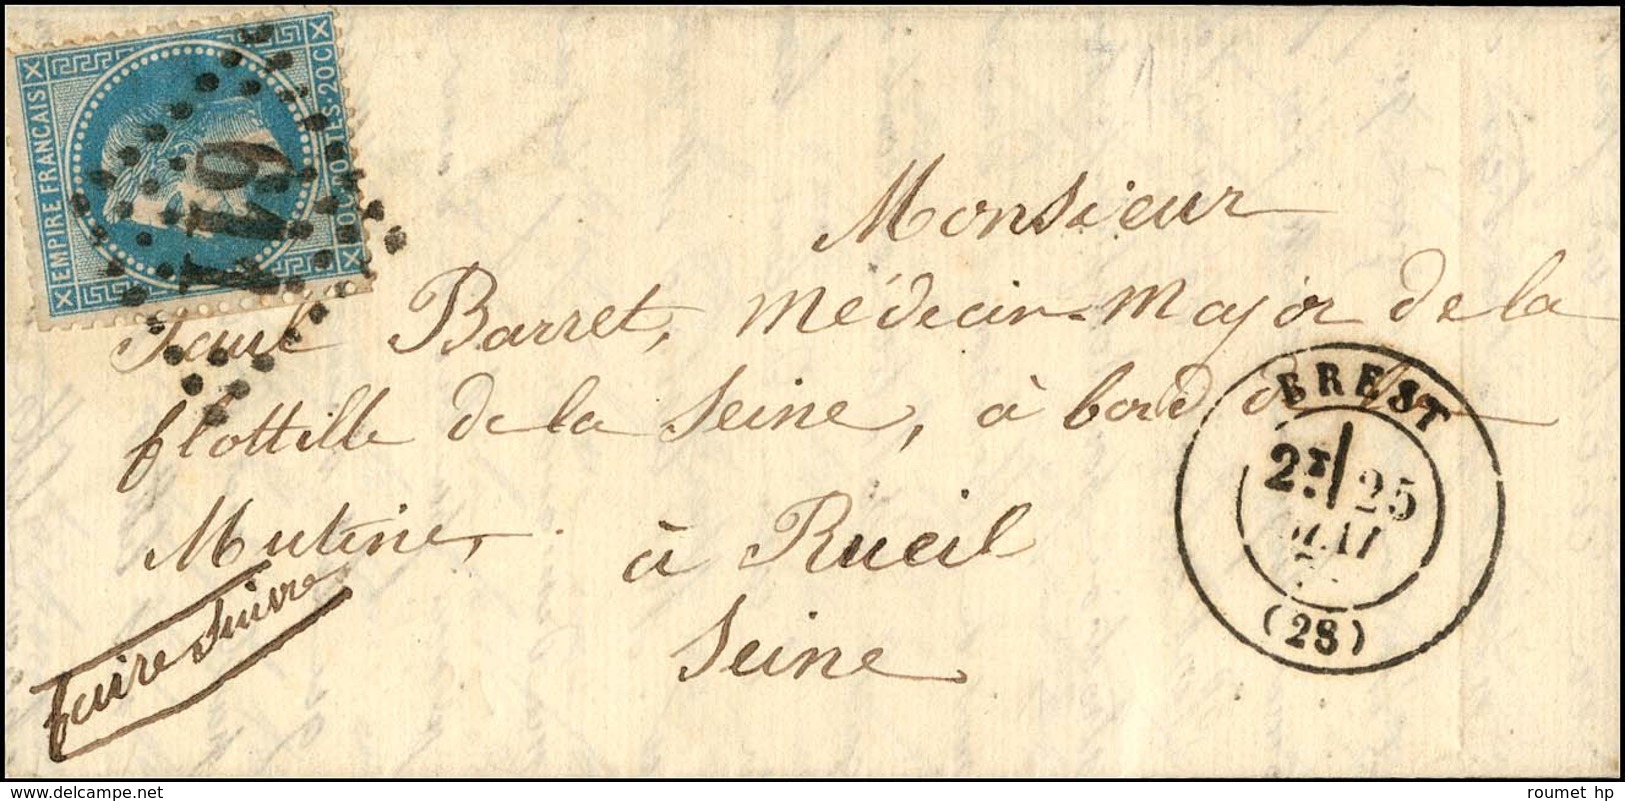 EMPIRE FRANCAIS
20 C POSTES 20 C
619
Monsieur
Paul Barret, Médecin-Major de la
flottille de la Seine, à bord de la
Mutine, à Rueil
Seine
faire suivre
BREST
2E 25
MAI
(28)
roumet hp